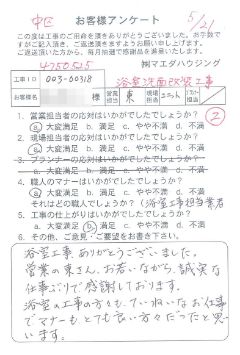 中区 お客様アンケート 5/21
この度は工事のご用命を頂きありがとうございました。お手数で
すがご記入頂き、ご返送頂きますようお願い申し上げます。
ご返送頂いた方から、毎月抽選で感謝品を差し上げます。
4750515 ㈱マエダハウジング
工事ID 003-00318 浴室洗面改装工事
様 営業担当 東 現場担当
②
1. 営業担当者の応対はいかがでしたでしょうか?
a 大変満足 b. 満足 c. やや不満 d. 不満
2. 現場担当者の応対はいかがでしたでしょうか?
a 大変満足 b. 満足 c. やや不満 d. 不満
3. プランナーの応対はいかがでしたでしょうか?
a. 大変満足 b. 満足 c. やや不満 d. 不満
4. 職人のマナーはいかがでしたでしょうか?
a 大変満足 b. 満足 c. やや不満 d. 不満
それはどの職人でしょうか?(浴室工事担当業者
5. 工事の仕上がりはいかがでしたでしょうか?
a. 大変満足 b 満足 c. やや不満 d. 不満
6. その他、ご意見・ご要望をお書き下さい。
浴室工事ありがとうございました。
営業の東さん、お若いながら、誠実な
仕事ぶりで感謝しております。
浴室の工事の方々も、ていねいなお仕事
でマナーもとても良い方々だったと思い
ます。